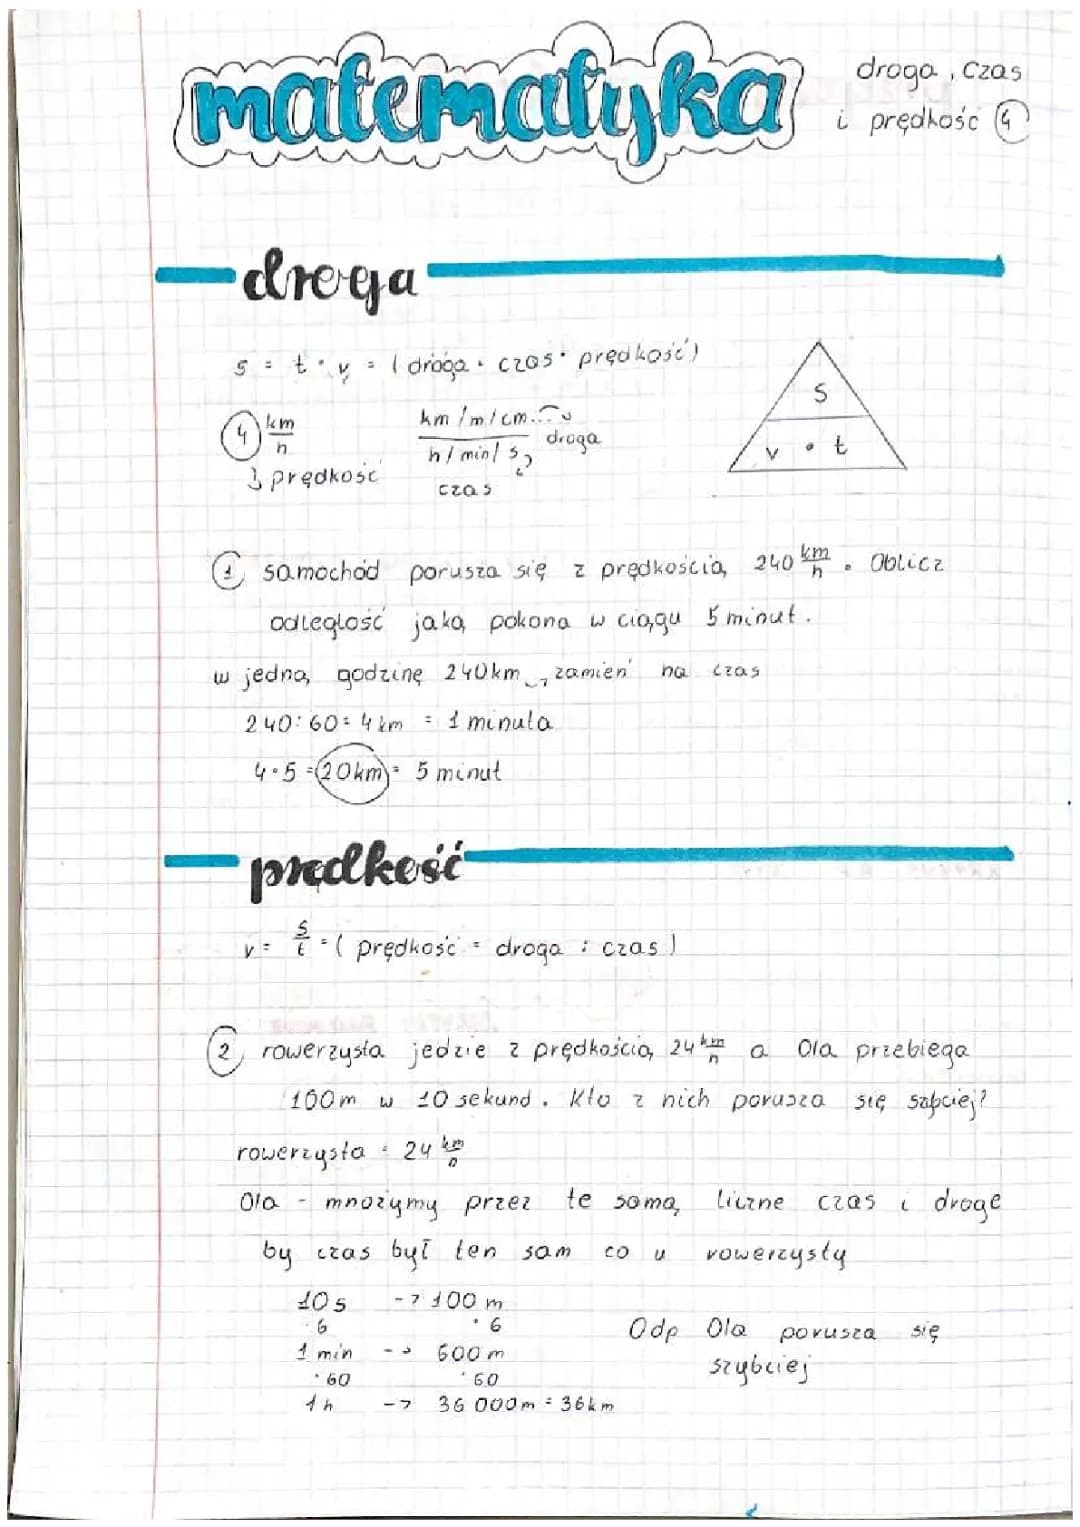 matematyka
droga, czas
i prędkość 4
droga
s = t · v = (droga · czas · prędkość)
4 km/h
prędkość
km/m/cm... droga
h/min/s
czas
s
v · t
1 samochód porusza się z prędkością 240 km/h. Oblicz
odległość jaką pokona w ciągu 5 minut.
w jedną godzinę 240km, zamień na czas
240:60 = 4 km = 1 minuta
4·5 = 20km = 5 minut
prędkość
v = s/t = (prędkość = droga : czas)
2 rowerzysta jedzie z prędkością 24 km/h a Ola przebiega
100m w 10 sekund. Kto z nich porusza się szybciej?
rowerzysta = 24 km/h
Ola - mnożymy przez te samą liczne czas i droge
by czas był ten sam co u rowerzysty
10s -> 100 m
·6 ·6
1 min -> 600 m
·60 ·60
1h -> 36 000m = 36km
Odp Ola porusza się
szybciej